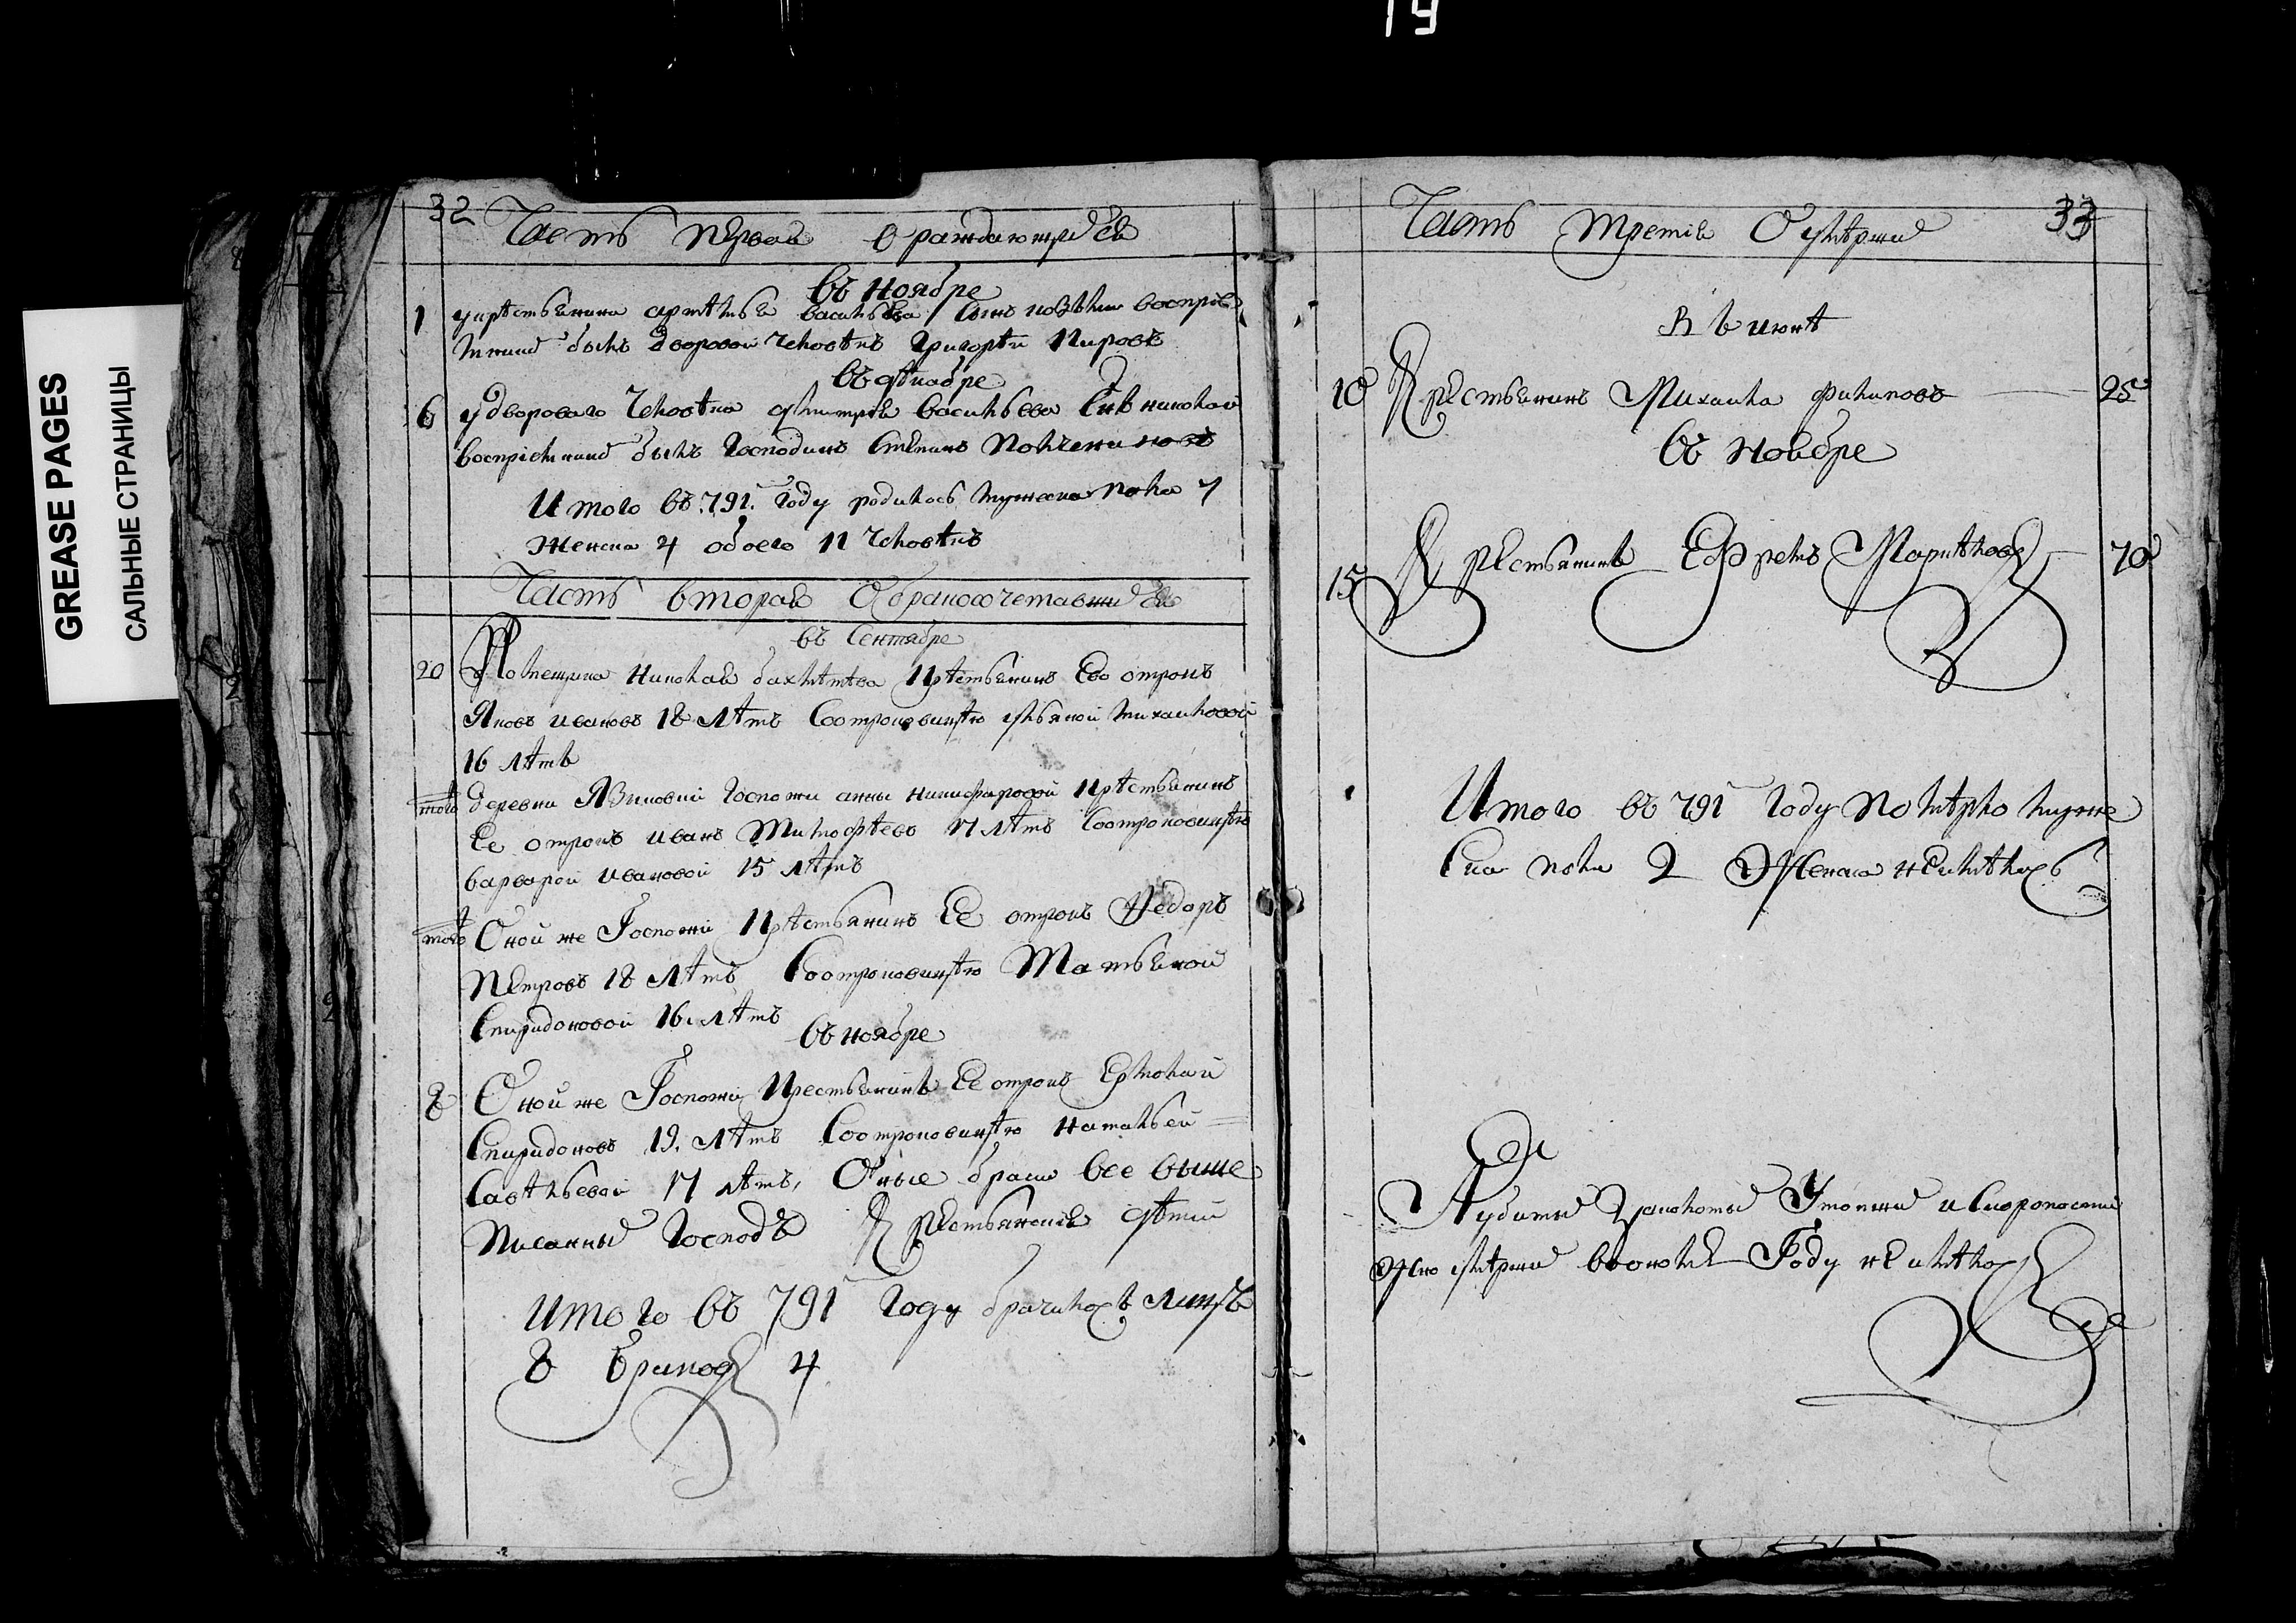 19
GREASE PAGES
САЛЬНЫЕ СТРАНИЦЫ
32
Часть первая о раждающихся
въ ноябре
1 у крѣстьянина Артѣмья васильева сынъ воспрiе
мникъ былъ дворовой человѣкъ григорѣй Кировъ
въ дѣкабре
6 у дворового человѣка дмитрея васильева снъ николай
воспрiемникъ былъ господинъ степанъ
Итого въ .791. году родилось мужеска пола 7
женска 4 обоего 11 человѣкъ
Часть вторая О бракосочетавшихся
въ сентябре
20 Помещика николая бахмѣтева крѣстьянинъ Ево отрокъ
Яковъ ивановъ 18 лѣтъ соотроковицѣю ульяной михаиловой
16 лѣтъ
того деревни Языковки госпожи анны никифаровой крѣстьянинъ
Ее отрокъ иванъ Тимофѣевъ 17 лѣтъ соотроковицѣю
варварой ивановой 15 лѣтъ
того Оной же Госпожи крѣстьянинъ Ее отрокъ Федоръ
Петровъ 18 лѣтъ соотроковицѣю Татьяной
спиридоновой 16 лѣтъ
въ ноябре
8 Оной же Госпожи крестьянинъ Ее отрокъ Ермолай
спиридоновъ 19. лѣтъ соотроковицѣю натальей
савѣльевой 17 лѣтъ, Оные браки все выше
писанныхъ господъ крестьянские дѣти
Итого въ 791 году брачилось лицъ
8 браковъ 4
33
Часть третiя О умѣрших
въ июнѣ
10 Крестьянинъ Михаила филиповъ 25
въ ноябре
15 Крестьянинъ Ефремъ 70
Итого въ 791 году помѣрло муже
ска пола 2 женска неимѣлось
Убитых Утопших и скоропости
жно умѣрших вооном Году неимѣлось